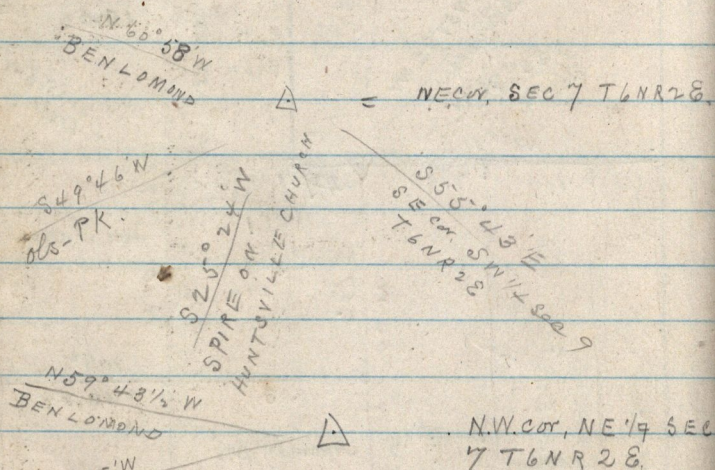 N 60° 58' W
BEN LOMOND
△ = NE Cor. SEC 7 T6NR2E.
S 49° 46' W
Obs-PK.
S 25° 24' W
SPIRE ON
HUNTSVILLE CHURCH
S 55° 43' E
SE cor. SW 1/4 Sec 9
T6NR2E
N 59° 43 1/2 W
BEN LOMOND
△ N.W. cor, NE 1/4 SEC
7 T6NR2E
'W